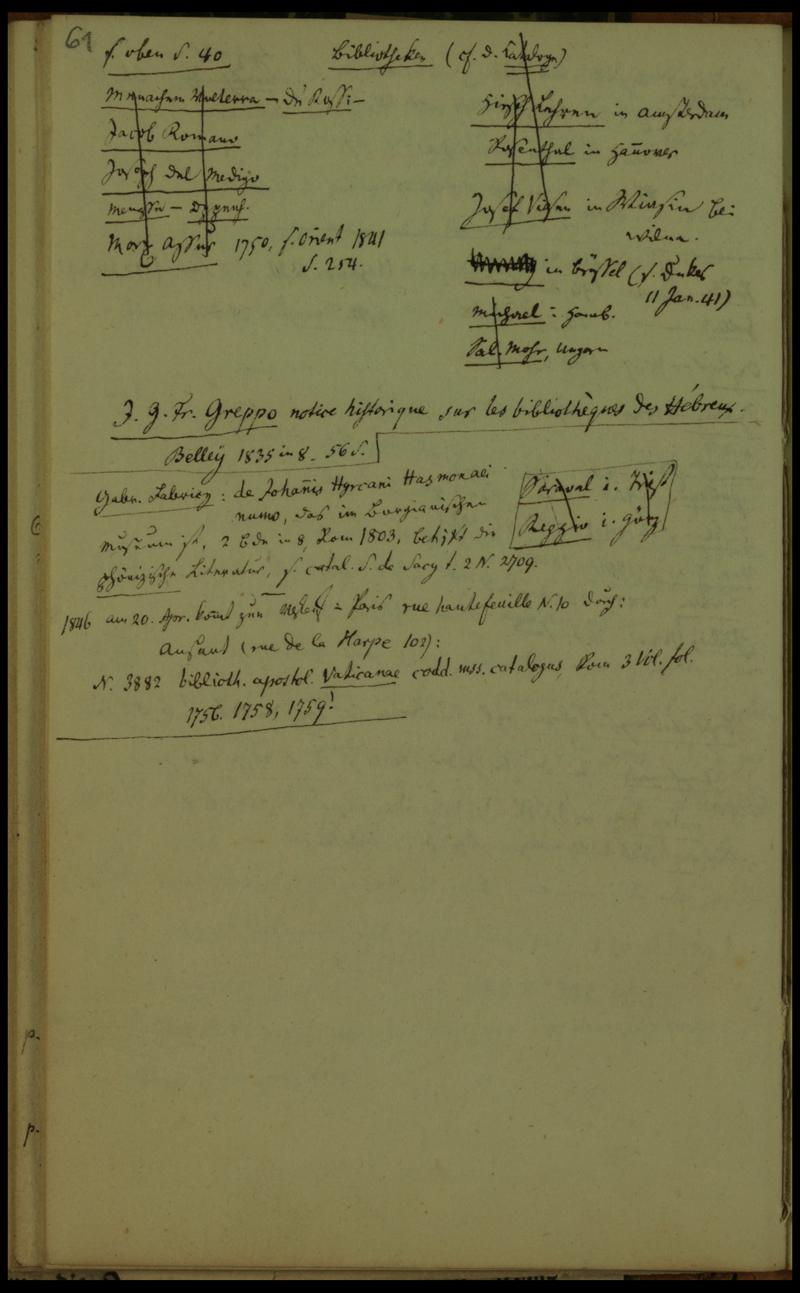 61
s. oben S. 40
Bibliotheken (cf. d. Kataloge)
Menachem Volterra — De Rossi —
Jacob Romano
Joseph Del Medigo
Menasse —
Mare Assur 1750, s. Orient 1841
S. 254.
Hirsch Lehren in Amsterdam
Rosenthal in Hannover
Josef in bei
Wilna.
in Brüssel (s. Dukes
11 Jan. 41)
Michael : Hamb.
Sal. Mohr, Ungarn
J. G. Fr. Greppo notice historique sur les bibliothèques des Hébreux.
Belley 1835 in 8. 56 S.
Gabr. Fabricy : de Johannis Hyrcani Hasmonaei
numo, das im Borgianischen
Museum ist, 2 Bde in 8, Rom 1803, die
phönizische Literatur, s. catal. S. de Sacy t. 2 N. 2709.
Saraval i. Triest
Reggio i. Görz
1846 am 20. Apr. kommt zum Paris rue hautefeuille N. 10 durch:
(rue de la Harpe 102):
N. 3882 biblioth. apostol. Vaticanae codd. mss. catalogus, Rom 3 Vol. fol.
1756. 1758, 1759!
p.
p.